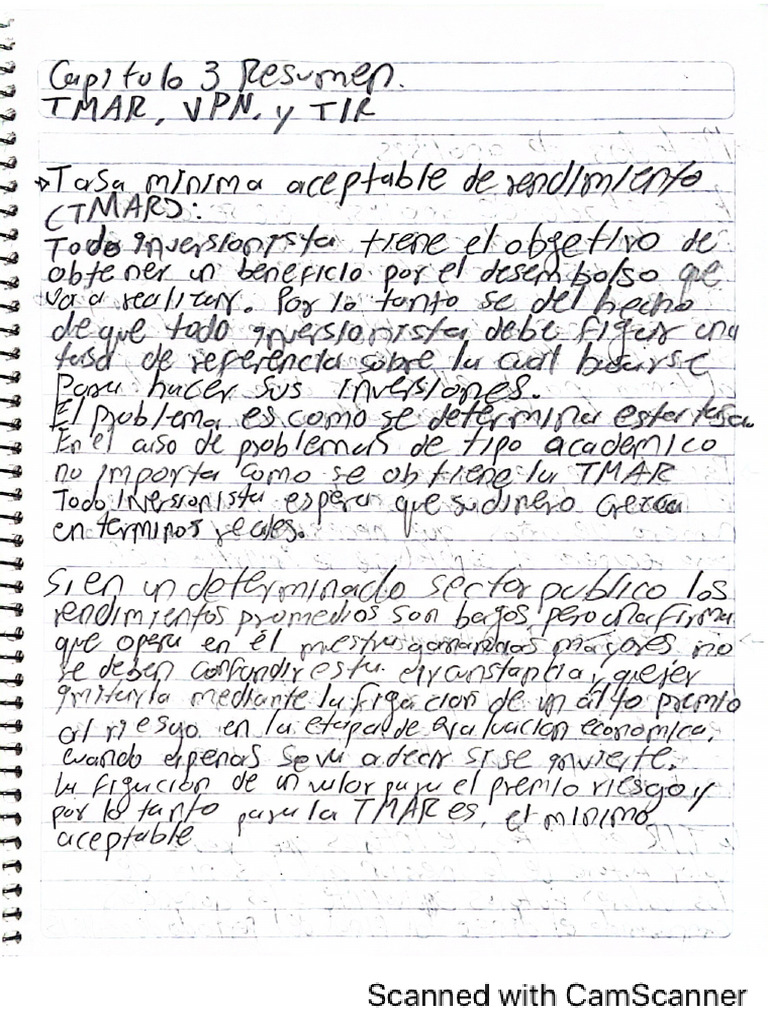 Capitulo 3 Resumen.
TMAR, VPN, y TIR
→Tasa minima aceptable de rendimiento
(TMAR):
Todo inversionista tiene el objetivo de
obtener un beneficio por el desembolso que
va a realizar. Por lo tanto se del hecho
de que todo inversionista debe figar una
tasa de referencia sobre la cual basarse
para hacer sus inversiones.
El problema es como se determina esta tasa.
En el caso de problemas de tipo academico
no importa como se obtiene la TMAR
Todo inversionista espera que su dinero crezca
en terminos reales.
Si en un determinado sector publico los
rendimientos promedios son bagos, pero una firma
que opera en él muestra ganancias mayores no
se deben confundir esta circunstancia y querer
imitarla mediante la figacion de un alto premio
al riesgo en la etapa de evaluacion economica,
cuando apenas se va a decir si se invierte.
la figacion de un valor para el premio riesgo y
por lo tanto para la TMAR es, el minimo
aceptable
Scanned with CamScanner